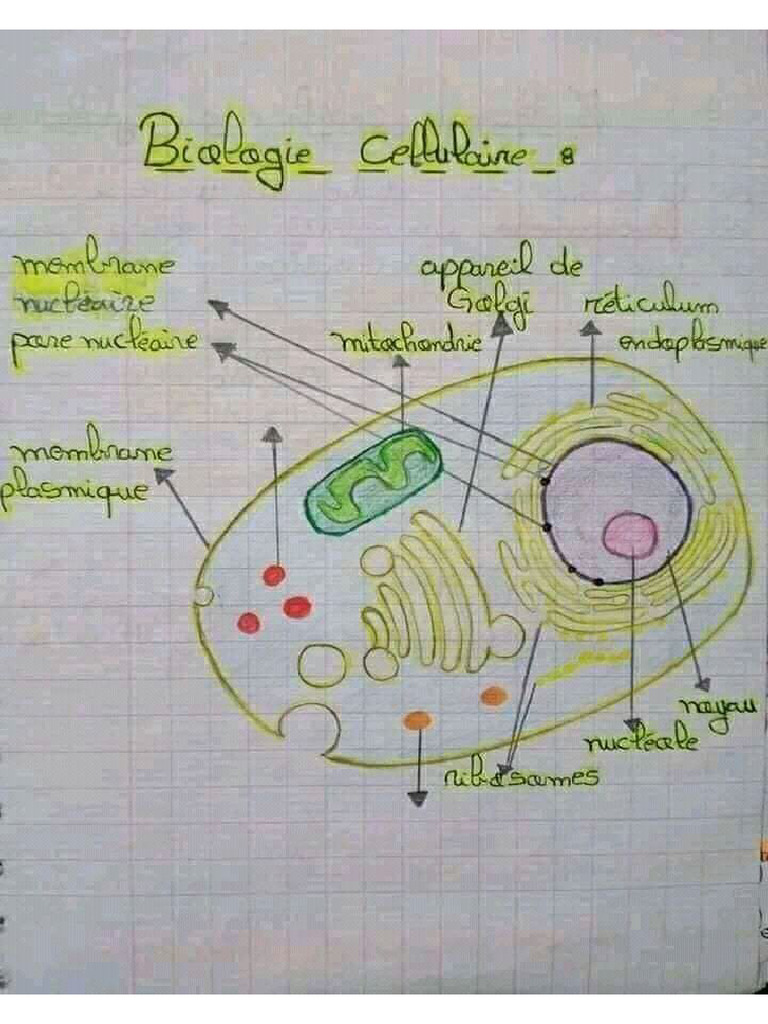 Biologie Cellulaire :
membrane
nucléaire
pore nucléaire
appareil de
Golgi
réticulum
endoplasmique
mitochondrie
membrane
plasmique
noyau
nucléole
ribosomes